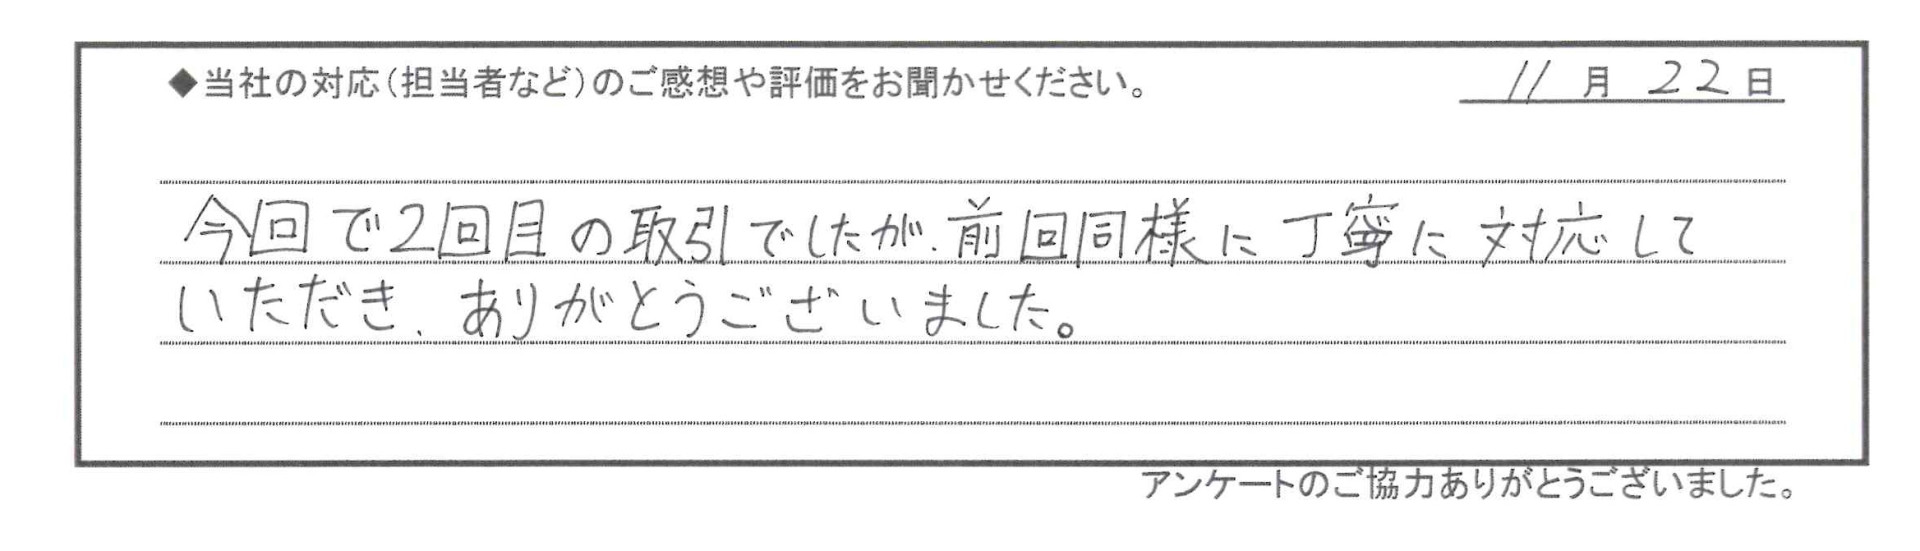 ◆当社の対応(担当者など)のご感想や評価をお聞かせください。 11月22日
今回で2回目の取引でしたが、前回同様に丁寧に対応して
いただき、ありがとうございました。
アンケートのご協力ありがとうございました。